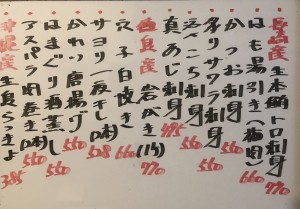 長崎産 生本鮪トロ刺身 770
はも湯引き(梅肉) 660
かつお刺身 550
炙りサワラ刺身 550
いこち刺身 550
真あじ刺身 495
徳島産 岩がき(1ヶ) 770
穴子白焼き 660
サヨリ一夜干し(2串) 528
かれい唐揚げ 550
はまぐり酒蒸し 550
アスパラ肉巻き(2串) 550
沖縄産 生島らっきょ 385